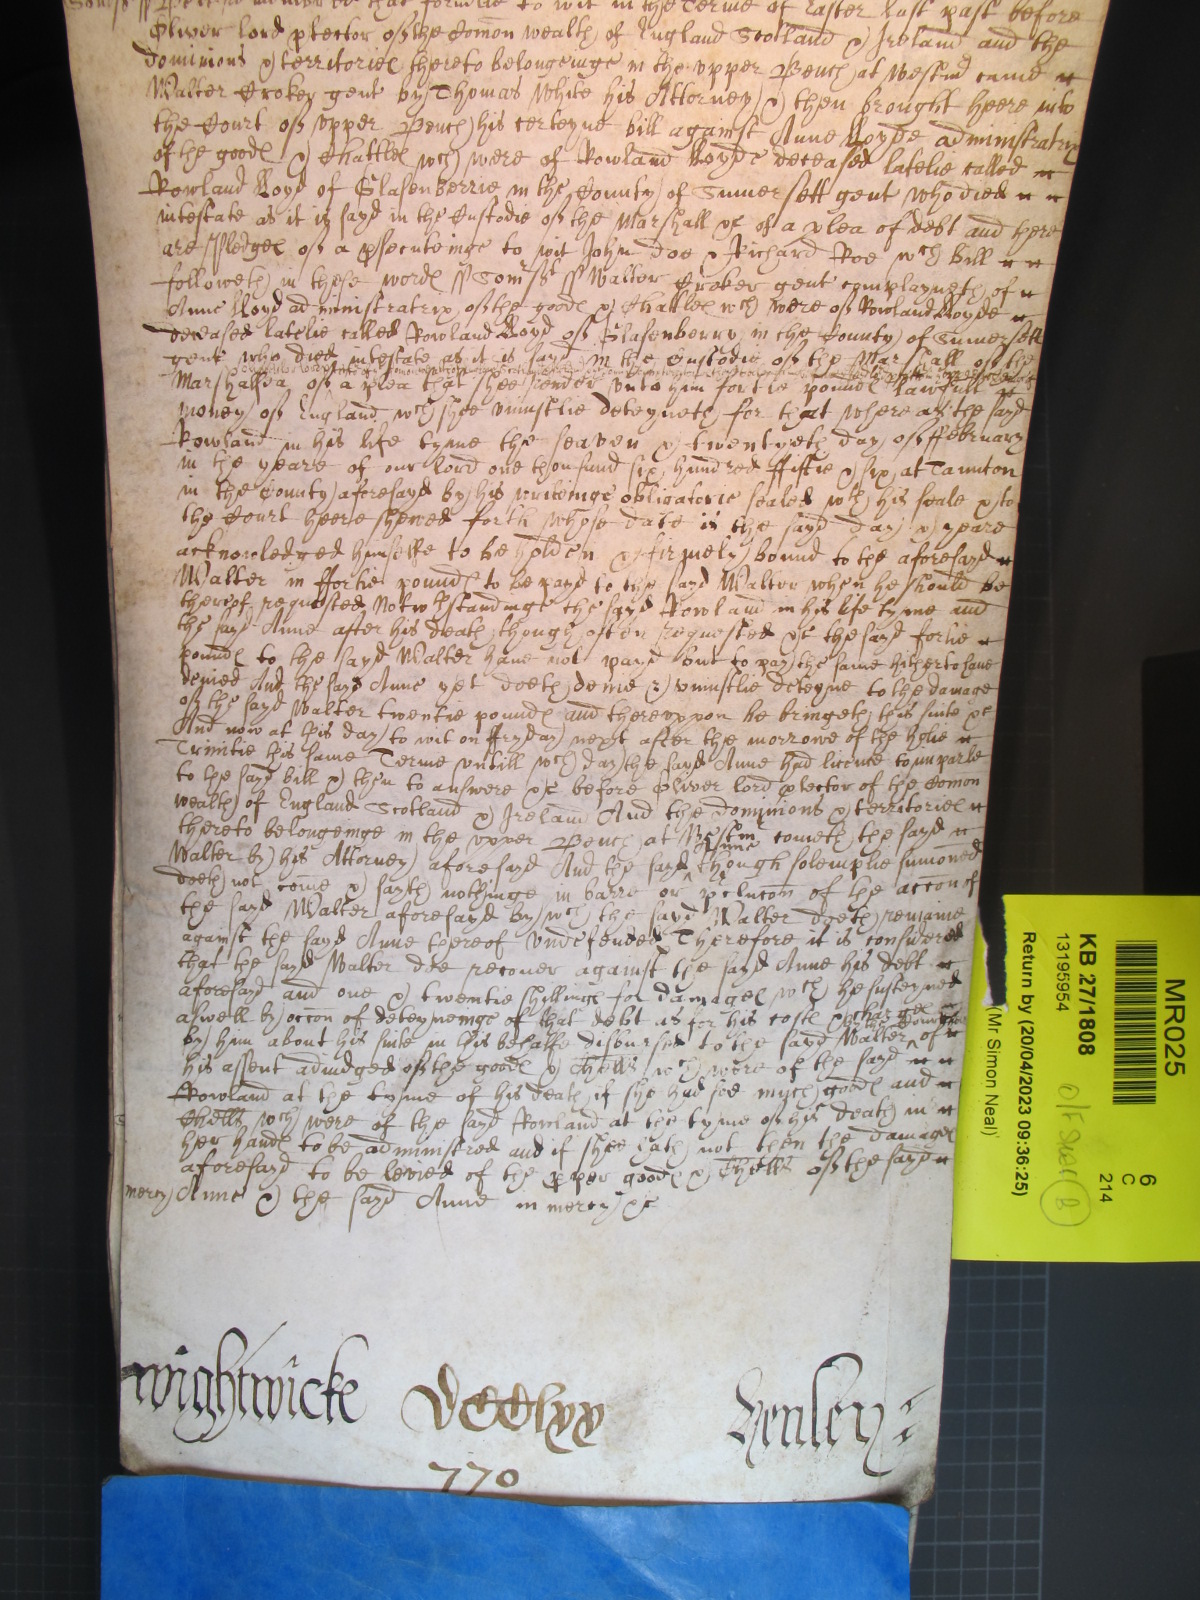 Somsett ss Bee it remembred that formerlie to wit in the Terme of Easter last past before
Oliver lord ptector of the Comon wealth of England Scotland & Ireland and the
dominions & territories thereto belongeinge in the upper Bench at Westmr came
Walter Croker gent by Thomas White his Attorney & then brought heere into
the Court of upper Bench his certeyne bill against Anne lloyde administratrix
of the goodes & Chattles wch were of Rowland lloyde deceased latelie called
Rowland lloyd of Glasenberrie in the County of Sumersett gent who died
intestate as it is sayd in the Custodie of the Marshall &c of a plea of debt and here
are Pledges of a psecuteinge to wit John Doe & Richard Roe wch bill
followeth in these wordes ss Somsett ss Walter Croker gent complayneth of
Anne lloyd administratrix of the goodes & Chattles wch were of Rowland lloyde
deceased latelie called Rowland lloyd of Glasenberry in the County of Sumersett
gent who died intestate as it is sayd in the Custodie of the Marshall of the
Marshallsea of a plea that shee render unto him fortie poundes lawfull
money of England wch shee uniustlie deteyneth for that whereas the sayd
Rowland in his life tyme the seaven & twentyeth day of February
in the yeare of our lord one thousand six hundred fiftie & six at Taunton
in the County aforesayd by his writeinge obligatorie sealed wth his seale & to
the Court heere shewed forth whose date is the sayd day & yeare
acknowledged himselfe to be holden & firmely bound to the aforesayd
Walter in fortie poundes to be payd to the sayd Walter when he should be
thereof requested Notwthstandinge the sayd Rowland in his life tyme and
the sayd Anne after his death though often requested &c the sayd fortie
poundes to the sayd Walter have not payd but to pay the same hitherto have
denied And the sayd Anne yet doeth denie & uniustlie deteyne to the damage
of the sayd Walter twentie poundes and thereuppon he bringeth this suite &c
And now at this day to wit on ffryday next after the morrowe of the holie
Trinitie this same Terme untill wch day the sayd Anne had licence to imparle
to the sayd bill & then to answere &c before Oliver lord ptector of the Comon
wealth of England Scotland & Ireland And the dominions & territories
thereto belongeinge in the upper Bench at Westmr cometh the sayd
Walter by his Attorney aforesayd And the sayd Anne though solemplie sumoned
doeth not come & sayth nothinge in barre or pclucon of the accon of
the sayd Walter aforesayd by wch the sayd Walter doeth remaine
against the sayd Anne thereof undefended Therefore it is considered
that the sayd Walter doe recover against the sayd Anne his debt
aforesayd and one & twentie shillinges for damages wch he susteyned
aswell by occon of deteyneinge of that debt as for his costes & charges
by him about his suite in this behalfe disbursed to the sayd Walter by the Court of
his assent adiudged of the goodes & Chells wch were of the sayd
Rowland at the tyme of his death if she had soe much goodes and
Chells wch were of the sayd Rowland at the tyme of his death in
her handes to be administred and if shee hath not then the damages
aforesayd to be levied of the pper goodes & Chells of the sayd
mercy Anne & the sayd Anne in mercy &c
Wightwicke DCClxx Henley
770
MR025
KB 27/1808
13195954
Return by (20/04/2023 09:36:25)
(Mr. Simon Neal)
6
C
214